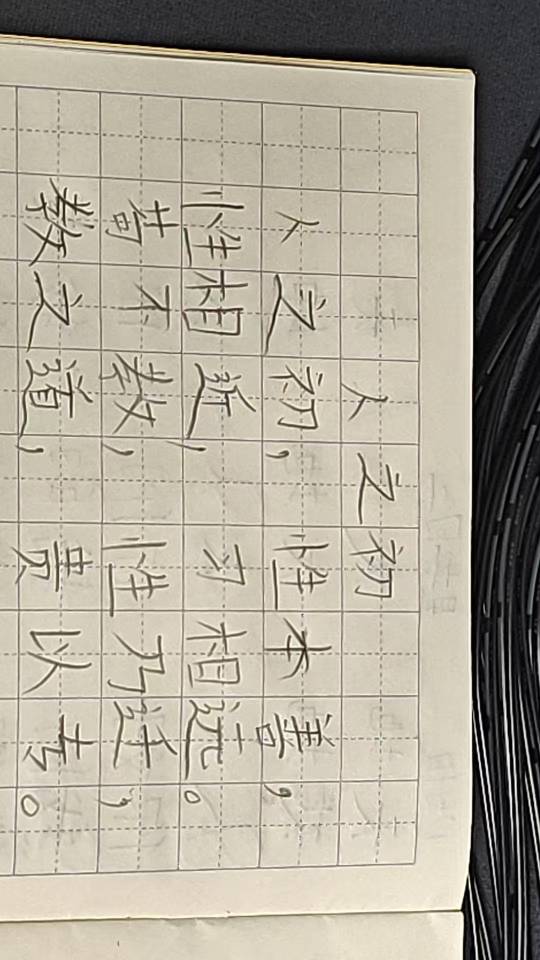 人之初
人之初，性本善，
性相近，习相远。
苟不教，性乃迁，
教之道，贵以专。